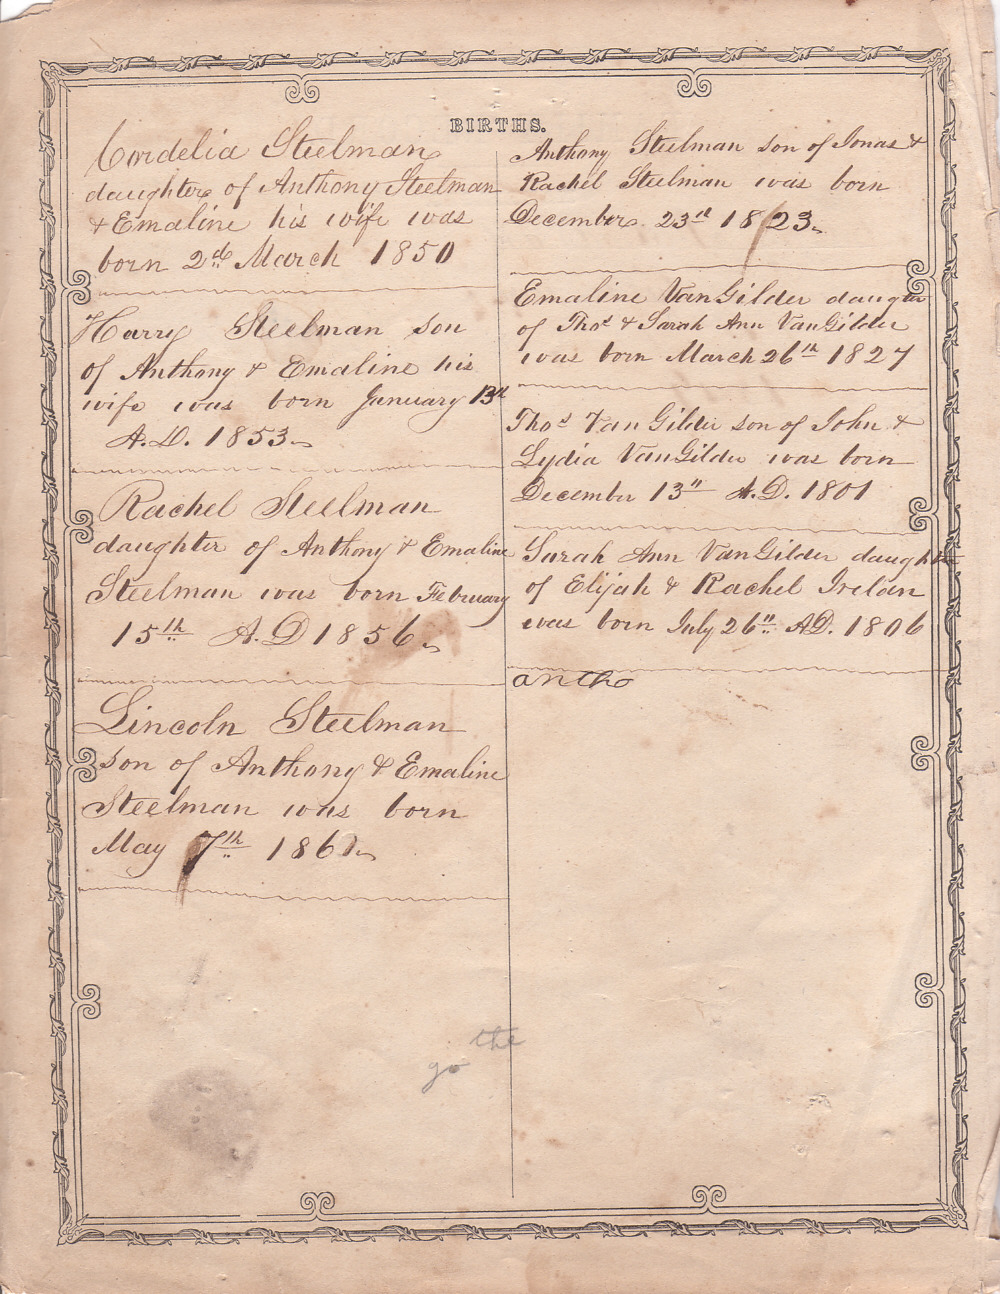 BIRTHS.
Cordelia Steelman
daughter of Anthony Steelman
& Emaline his wife was
born 2nd March 1850
Harry Steelman son
of Anthony & Emaline his
wife was born January 13th
A.D. 1853
Rachel Steelman
daughter of Anthony & Emaline
Steelman was born February
15th A.D 1856
Lincoln Steelman
son of Anthony & Emaline
Steelman was born
May 7th
Anthony Steelman son of Jonas &
Rachel Steelman was born
December 23rd 1823
Emaline VanGilder daughter
of Thos & Sarah Ann VanGilder
was born March 26th 1827
Thos VanGilder son of John &
Lydia VanGilder was born
December 13" A.D. 1801
Sarah Ann VanGilder daughter
of Elijah & Rachel Irelan
was born July 26" AD. 1806
antho
the
go